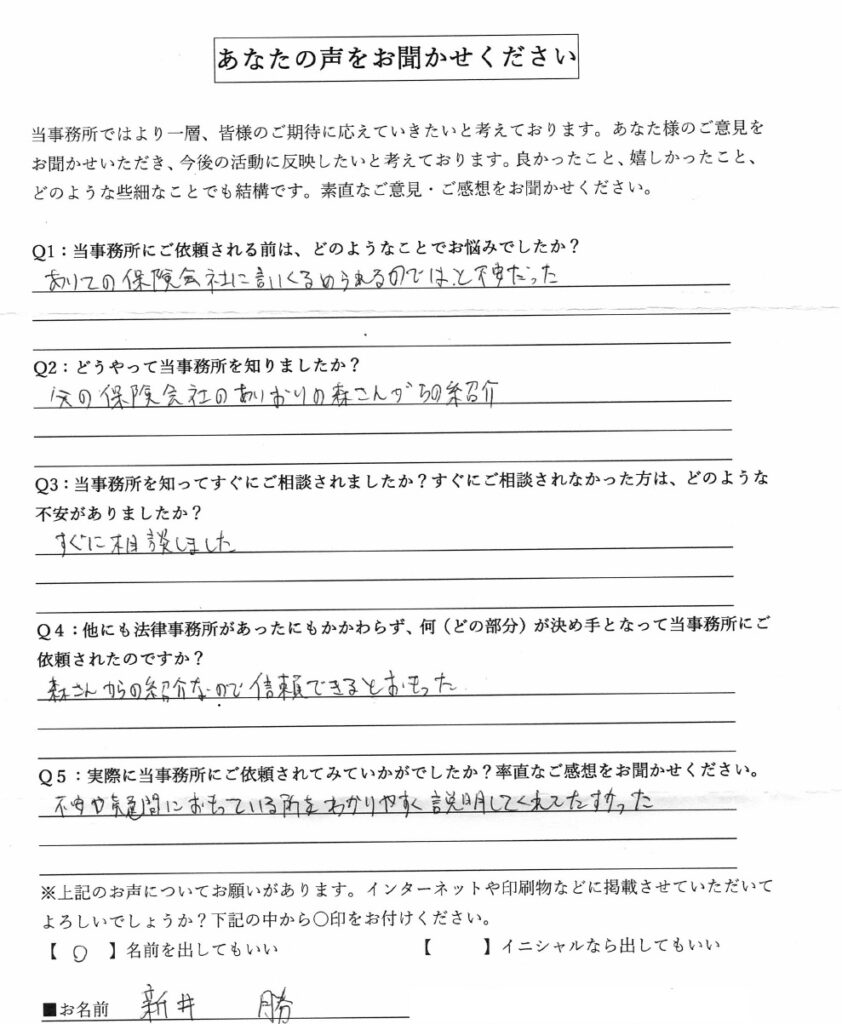 あなたの声をお聞かせください
当事務所ではより一層、皆様のご期待に応えていきたいと考えております。あなた様のご意見を
お聞かせいただき、今後の活動に反映したいと考えております。良かったこと、嬉しかったこと、
どのような些細なことでも結構です。素直なご意見・ご感想をお聞かせください。
Q1:当事務所にご依頼される前は、どのようなことでお悩みでしたか?
あいての保険会社に言いくるめられるのでは、と不安だった
Q2:どうやって当事務所を知りましたか?
父の保険会社のあいおいの森さんからの紹介
Q3:当事務所を知ってすぐにご相談されましたか?すぐにご相談されなかった方は、どのような
不安がありましたか?
すぐに相談しました
Q4:他にも法律事務所があったにもかかわらず、何(どの部分)が決め手となって当事務所にご
依頼されたのですか?
森さんからの紹介なので信頼できるとおもった
Q5:実際に当事務所にご依頼されてみていかがでしたか?率直なご感想をお聞かせください。
不安や疑問におもっている所をわかりやすく説明してくれてたすかった
※上記のお声についてお願いがあります。インターネットや印刷物などに掲載させていただいて
よろしいでしょうか?下記の中から〇印をお付けください。
【 〇 】名前を出してもいい 【 】イニシャルなら出してもいい
■お名前 新井 勝